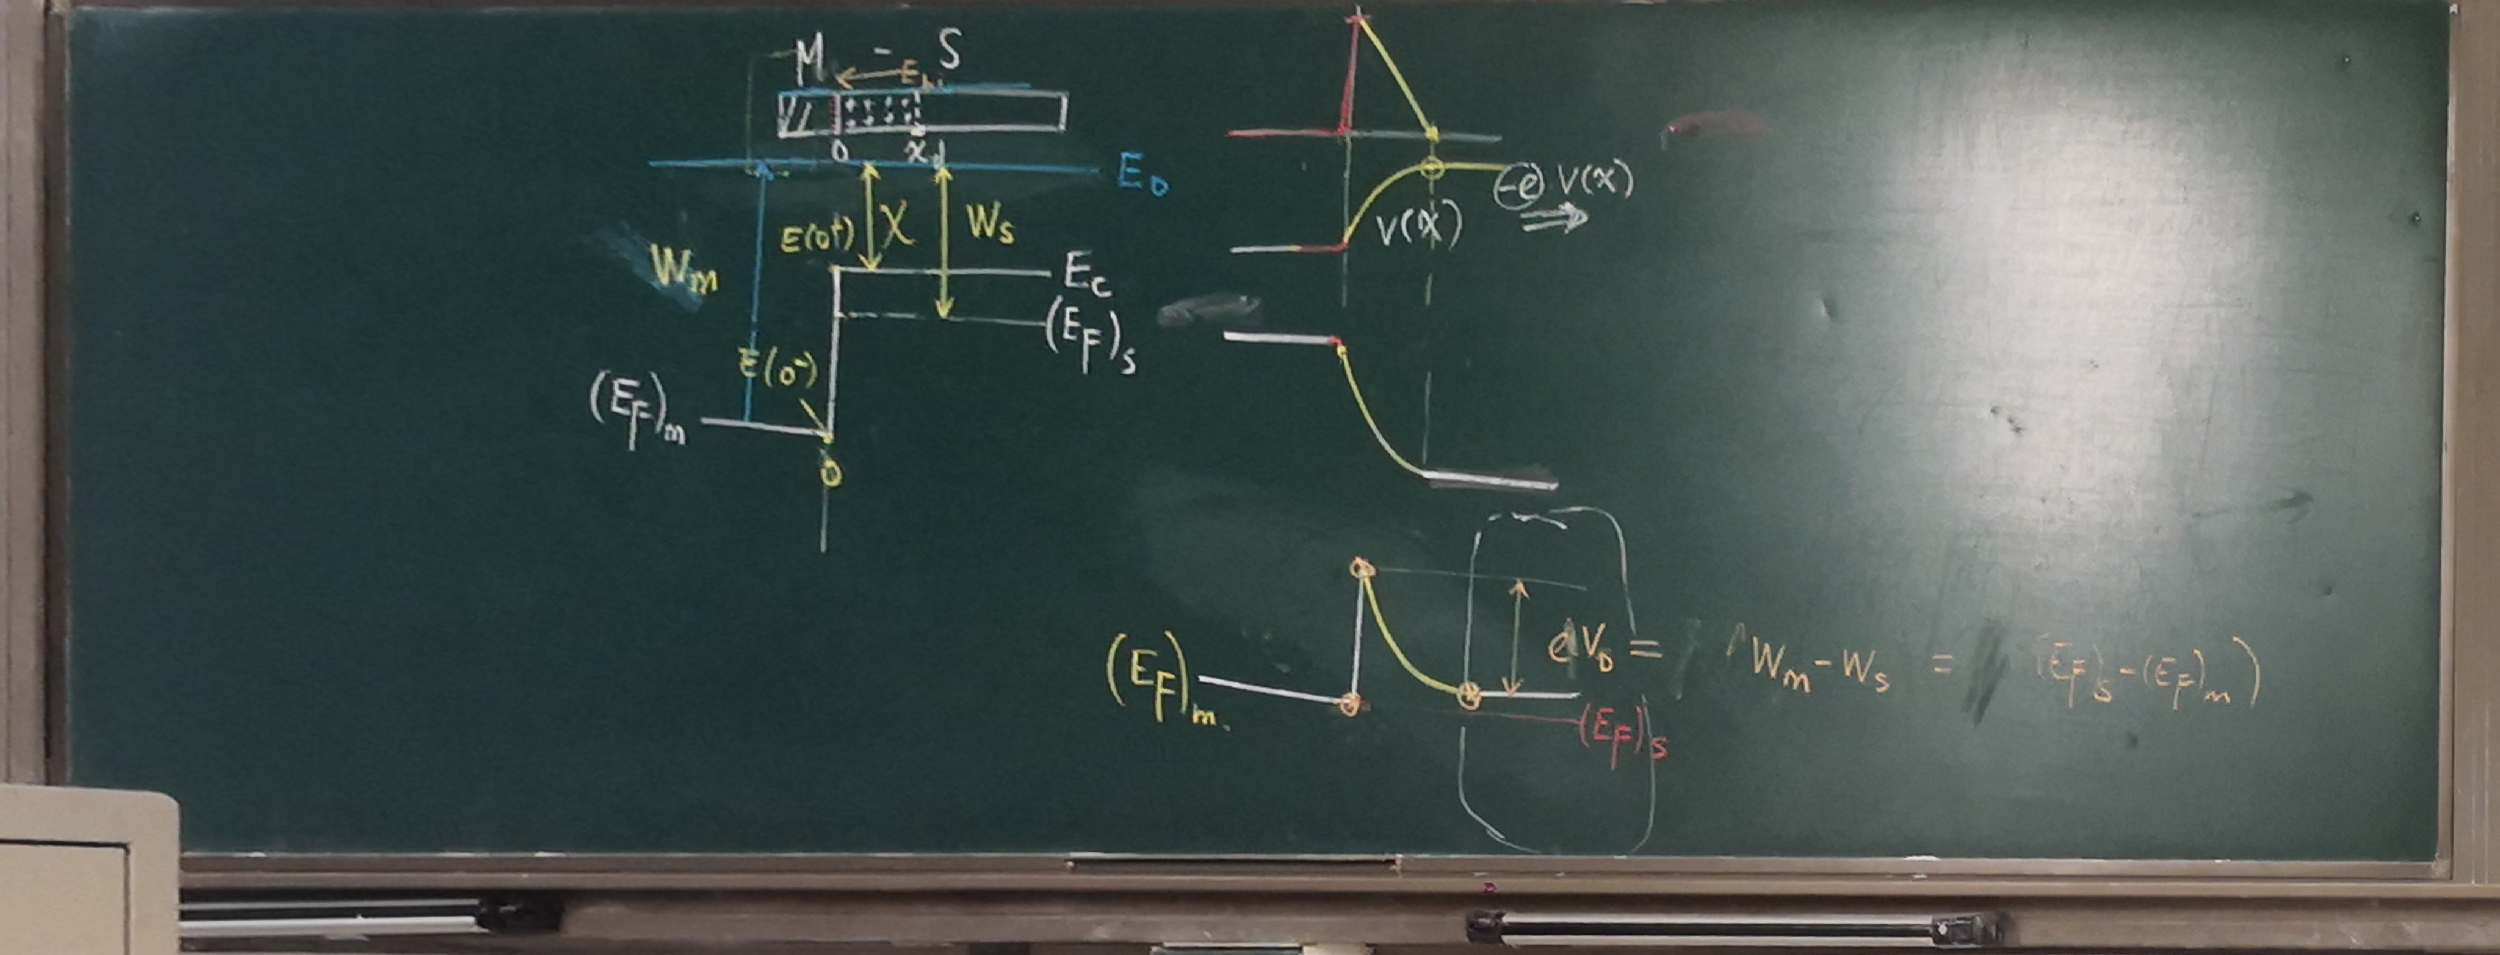 M - S
E_bi
0 x_d
E_0
E(0⁺) χ W_s
W_m
E_c
(E_F)_s
E(0⁻)
(E_F)_m
0
V(x)
-e V(x)
(E_F)_m
eV_D = W_m - W_s = (E_F)_s - (E_F)_m)
(E_F)_s